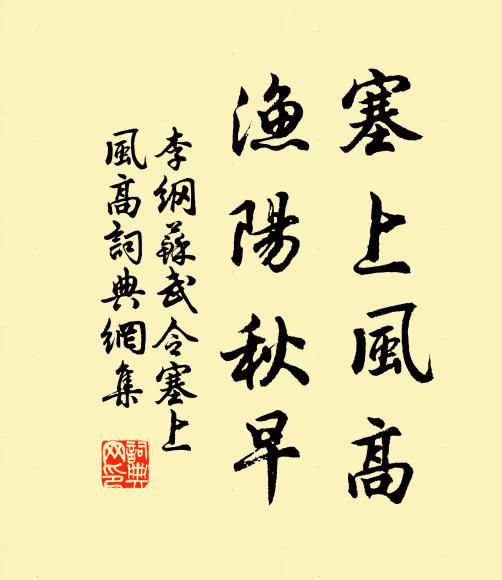 塞上風高
漁陽秋早
李纲蘇武令塞上
風高詞典網集
詞典
网印